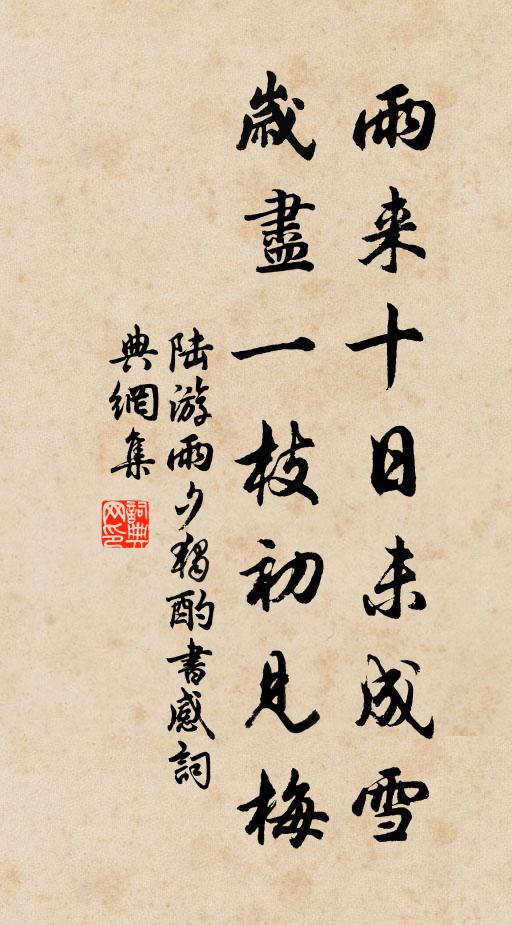 雨来十日未成雪
歲盡一枝初見梅
陆游雨夕獨酌書感詞
典網集
詞典網印